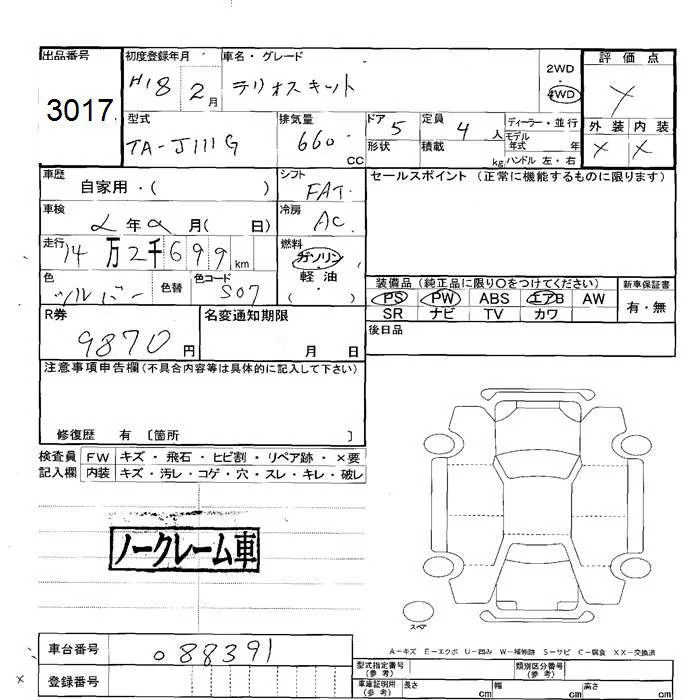 出品番号 初度登録年月 車名・グレード 評価点
3017 H18 2月 テリオスキット 2WD 4WD
型式 排気量 ドア 定員 ディーラー・並行 外装 内装
TA-J111G 660 CC 5 4人 モデル年式 年 X X
形状 積載 kg ハンドル 左・右
車歴 シフト セールスポイント (正常に機能するものに限ります)
自家用・( ) FAT
車検 年 月( 日) 冷房 AC
走行 14万2千699km 燃料 ガソリン
軽油
( )
色 シルバー 色替 色コード S07
装備品 (純正品に限り〇をつけてください) 新車保証書
PS PW ABS エアB AW 有・無
SR ナビ TV カワ
R券 名変通知期限 後日品
9870円 月 日
注意事項申告欄(不具合内容等は具体的に記入して下さい)
修復歴 有 〔箇所 〕
検査員 FW キズ・飛石・ヒビ割・リペア跡・×要
記入欄 内装 キズ・汚レ・コゲ・穴・スレ・キレ・破レ
ノークレーム車
スペア
A-キズ E-エクボ U-凹み W-補修跡 S-サビ C-腐食 XX-交換済
車台番号 088391
登録番号
型式指定番号(参考) 類別区分番号(参考)
車庫証明用(参考) 長さ cm 幅 cm 高さ cm